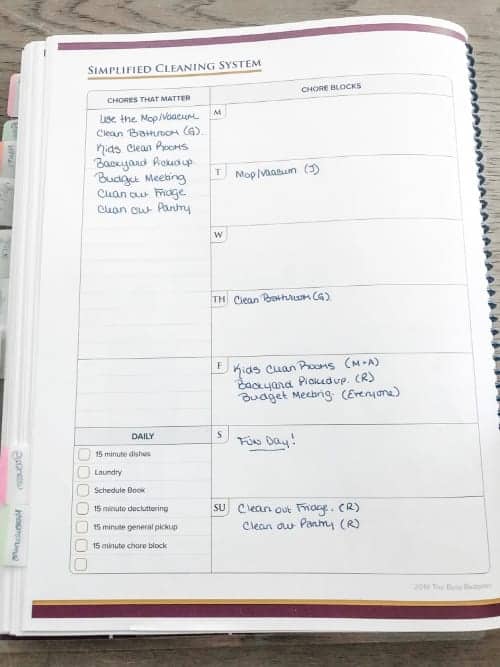 SIMPLIFIED CLEANING SYSTEM
CHORES THAT MATTER
Use the Mop/Vaacum
Clean Bathroom (G).
Kids Clean Rooms
Backyard Pickedup.
Budget Meeting
Clean out Fridge
Clean out Pantry
CHORE BLOCKS
M
T
Mop/Vaacum (J)
W
TH
Clean Bathroom (G)
F
Kids Clean Rooms (M+A)
Backyard Pickedup. (R)
Budget Meeting. (Everyone)
S
Fun Day!
SU
Clean out Fridge. (R)
Clean out Pantry (R)
DAILY
15 minute dishes
Laundry
Schedule Book
15 minute decluttering
15 minute general pickup
15 minute chore block
The Busy Budgeter